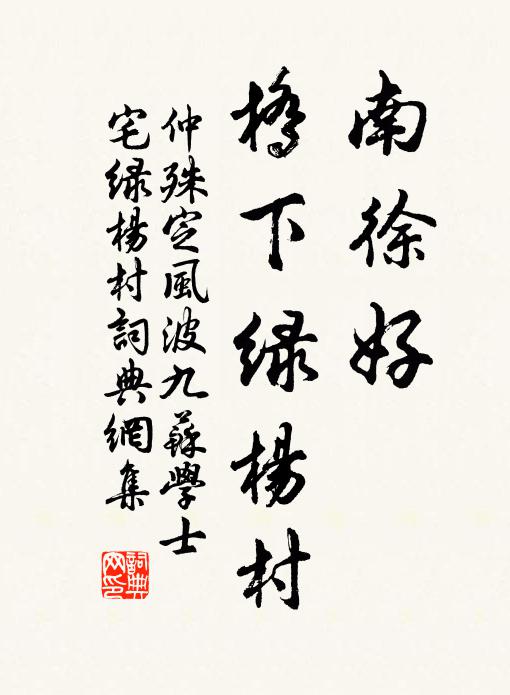 南徐好
橋下綠楊村
仲殊定風波九蘇學士
宅綠楊村詞典網集
詞典
网印